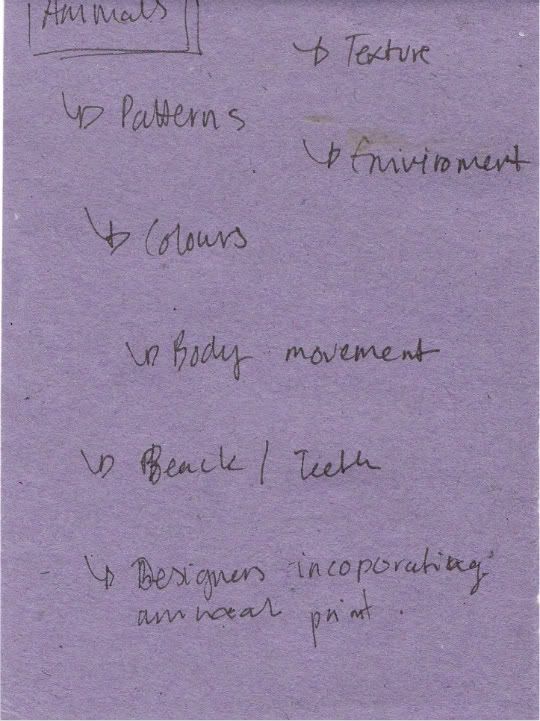 Animals
Texture
Patterns
Enviroment
Colours
Body movement
Beack / Teeth
Designers incoporating
animal print.